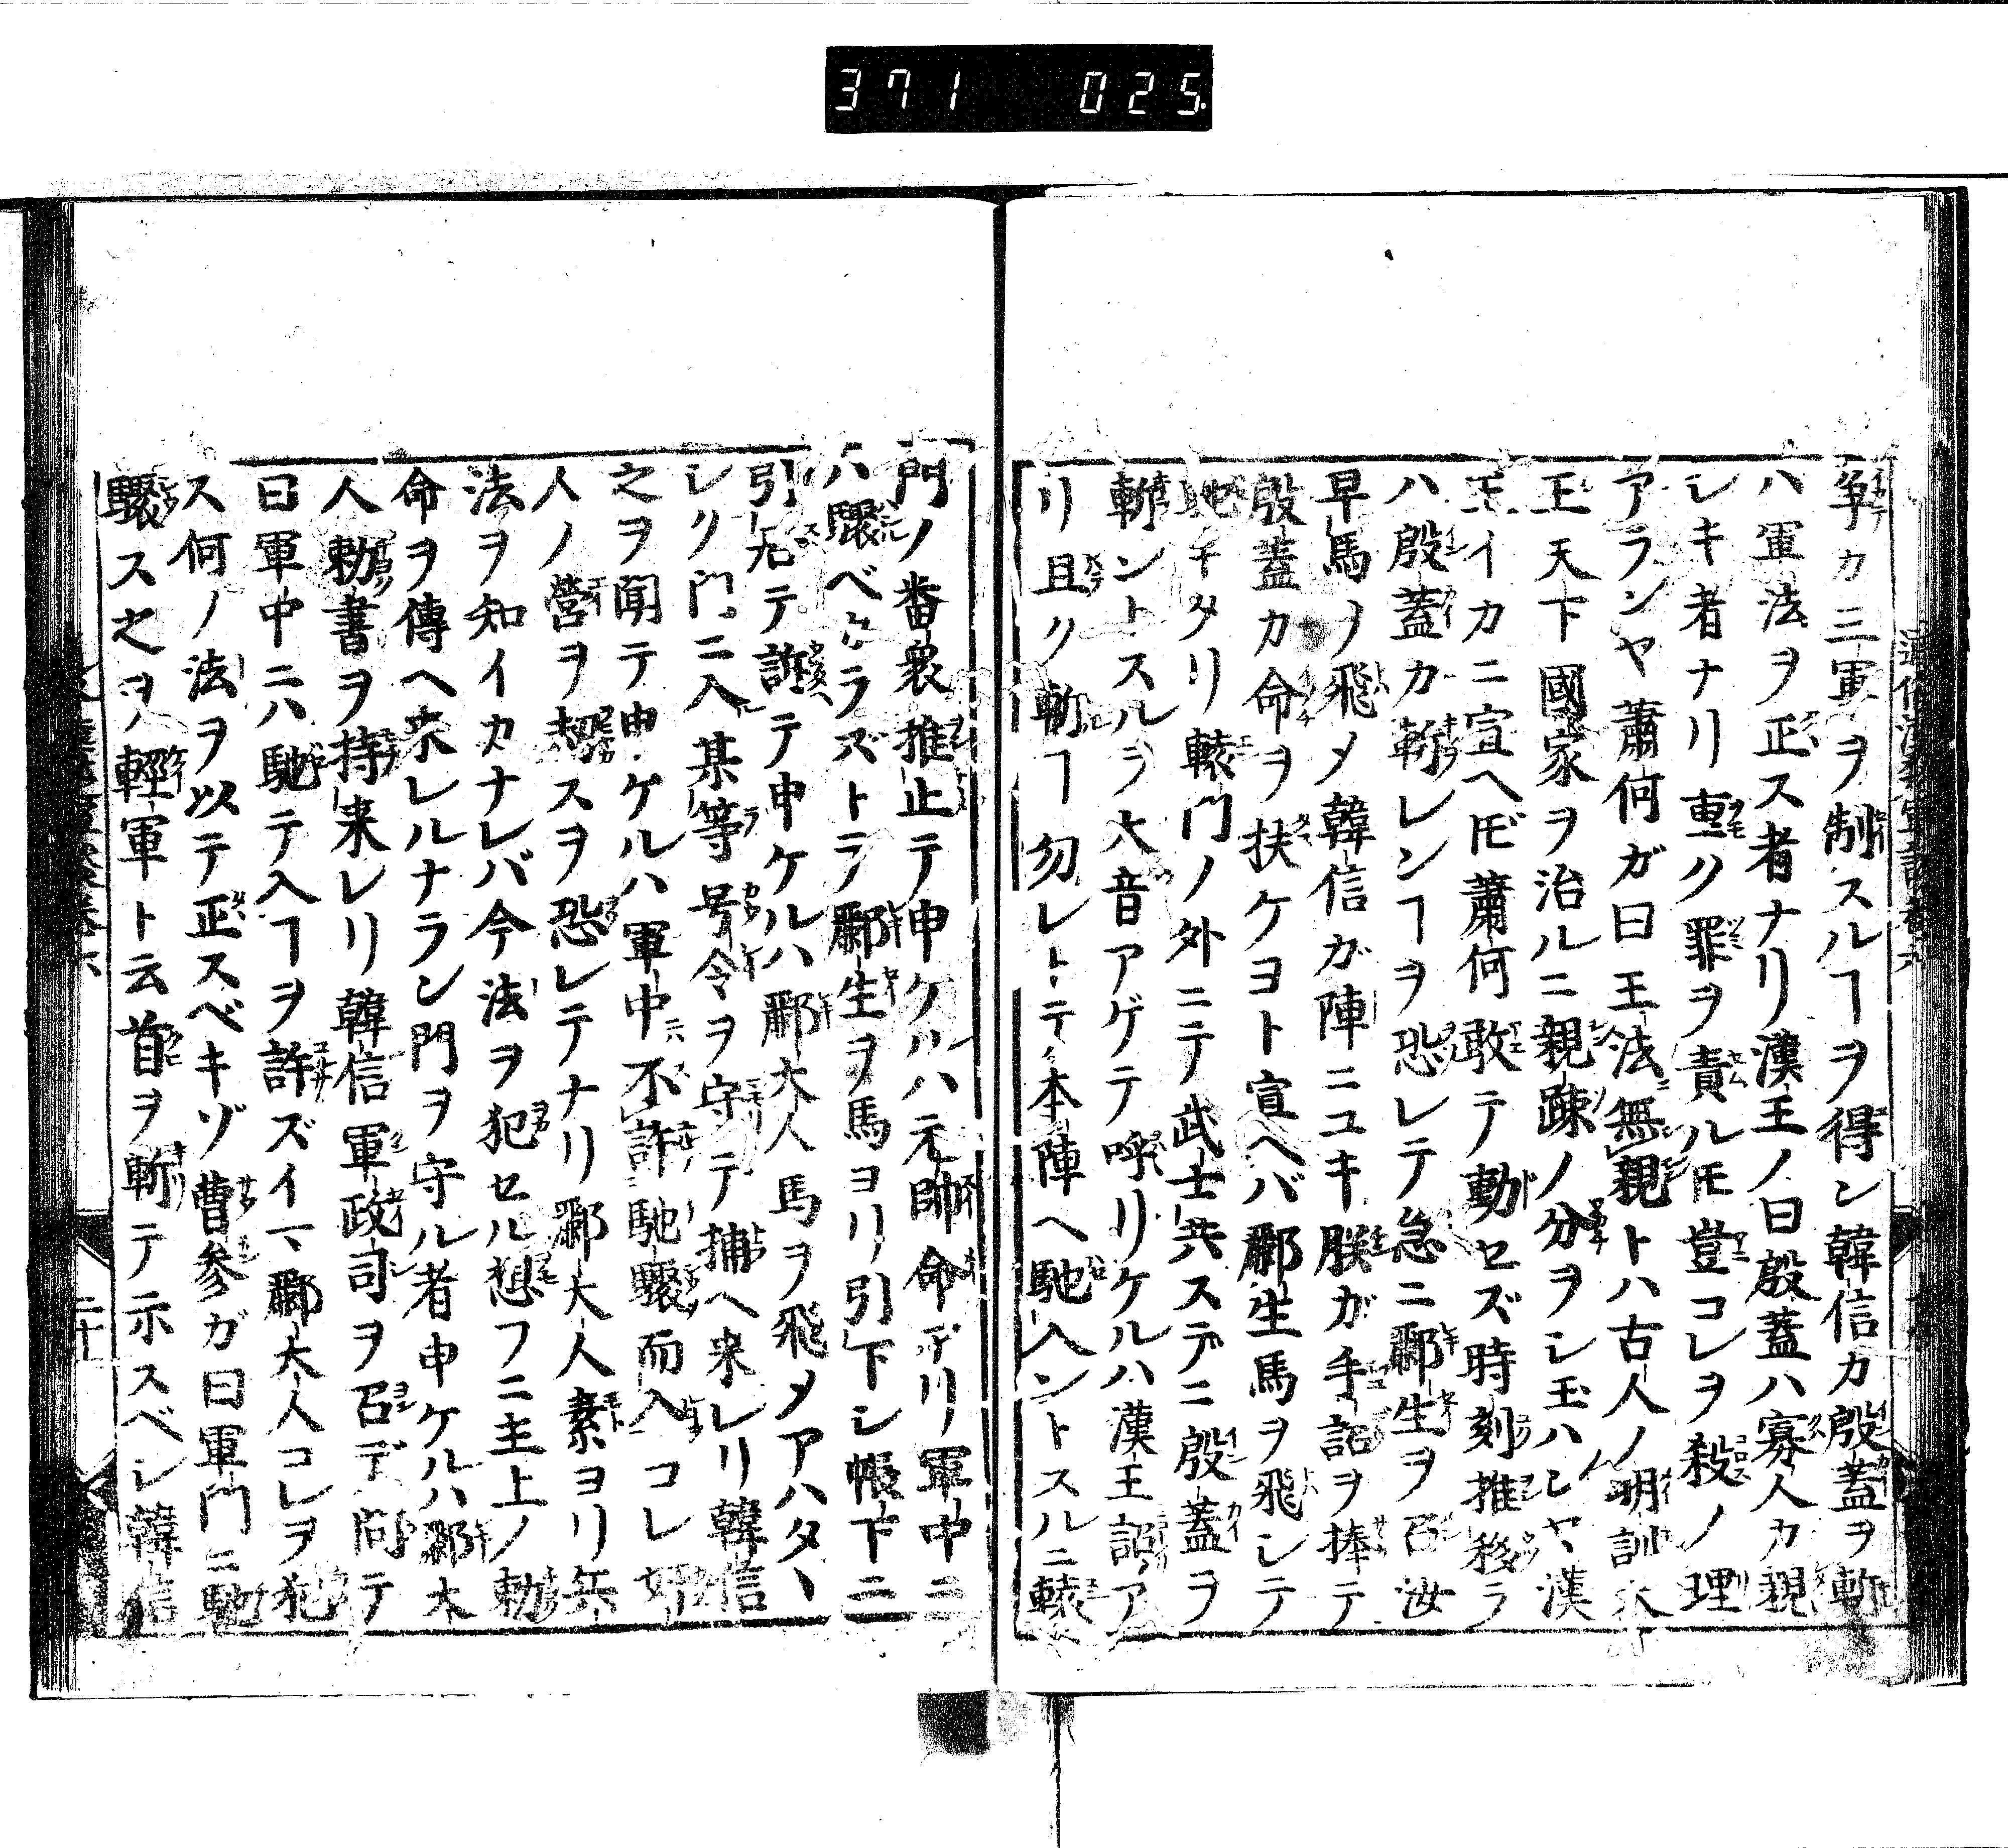 371 025
争カ三軍ヲ制スルヿヲ得ン韓信カ殷蓋ヲ斬
ハ軍法ヲ正ス者ナリ漢王ノ曰殷蓋ハ寡人カ親
シキ者ナリ重ク罪ヲ責ルトモ豈コレヲ殺ノ理
アランヤ蕭何ガ曰王法無親トハ古人ノ明訓
王天下國家ヲ治ルニ親疎ノ分ヲシ玉ハレヤ漢
王イカニ宣ヘトモ蕭何敢テ動セズ時刻推移ラ
ハ殷蓋カ斬レンヿヲ恐レテ急ニ酈生ヲ召汝
早馬ヲ飛メ韓信ガ陣ニユキ朕ガ手詔ヲ捧テ
殷蓋カ命ヲ扶ケヨト宣ヘバ酈生馬ヲ飛シテ
馳キタリ轅門ノ外ニテ武士共スデニ殷蓋ヲ
斬ントスルヲ大音アゲテ呼リケルハ漢王詔ア
リ且ク斬ヿ勿レトテ本陣ヘ馳入ントスルニ轅
門ノ番衆推止テ申ケルハ元帥命アリ軍中ニ
ハ驟ベカラズトテ酈生ヲ馬ヨリ引下シ帳下ニ
引居テ訴テ申ケルハ酈大人馬ヲ飛メアハタヽ
シク門ニ入某等号令ヲ守テ捕ヘ来レリ韓信
之ヲ聞テ申ケルハ軍中不許馳驟而入コレ
人ノ營ヲ劫スヲ恐レテナリ酈大人素ヨリ兵
法ヲ知イカナレバ今法ヲ犯セル想フニ主上ノ勅
命ヲ傳ヘ来レルナラン門ヲ守ル者申ケルハ酈大
人勅書ヲ持来レリ韓信軍政司ヲ召デ問テ
曰軍中ニハ馳テ入ヿヲ許ズイマ酈大人コレヲ犯
ス何ノ法ヲ以テ正スベキゾ曹参ガ曰軍門ニ馳
驟ス之ヲ輕軍ト云首ヲ斬テ示スベシ韓信
二十